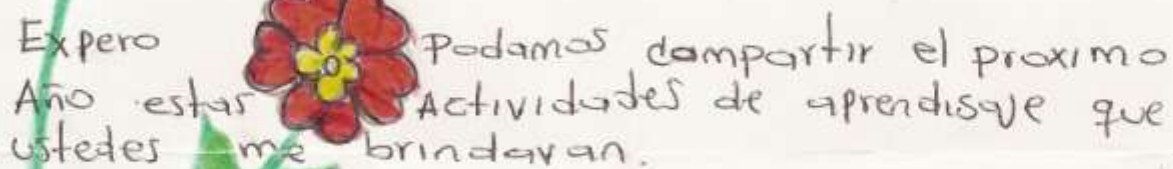 Expero Podamos compartir el proximo
Año estas Actividades de aprendisaje que
ustedes me brindavan.